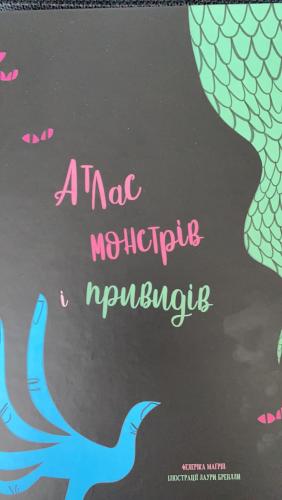 Атлас
монстрів
і привидів
ФЕДЕРІКА МАГРІН
ІЛЮСТРАЦІЇ ЛАУРИ БРЕНЛЛИ